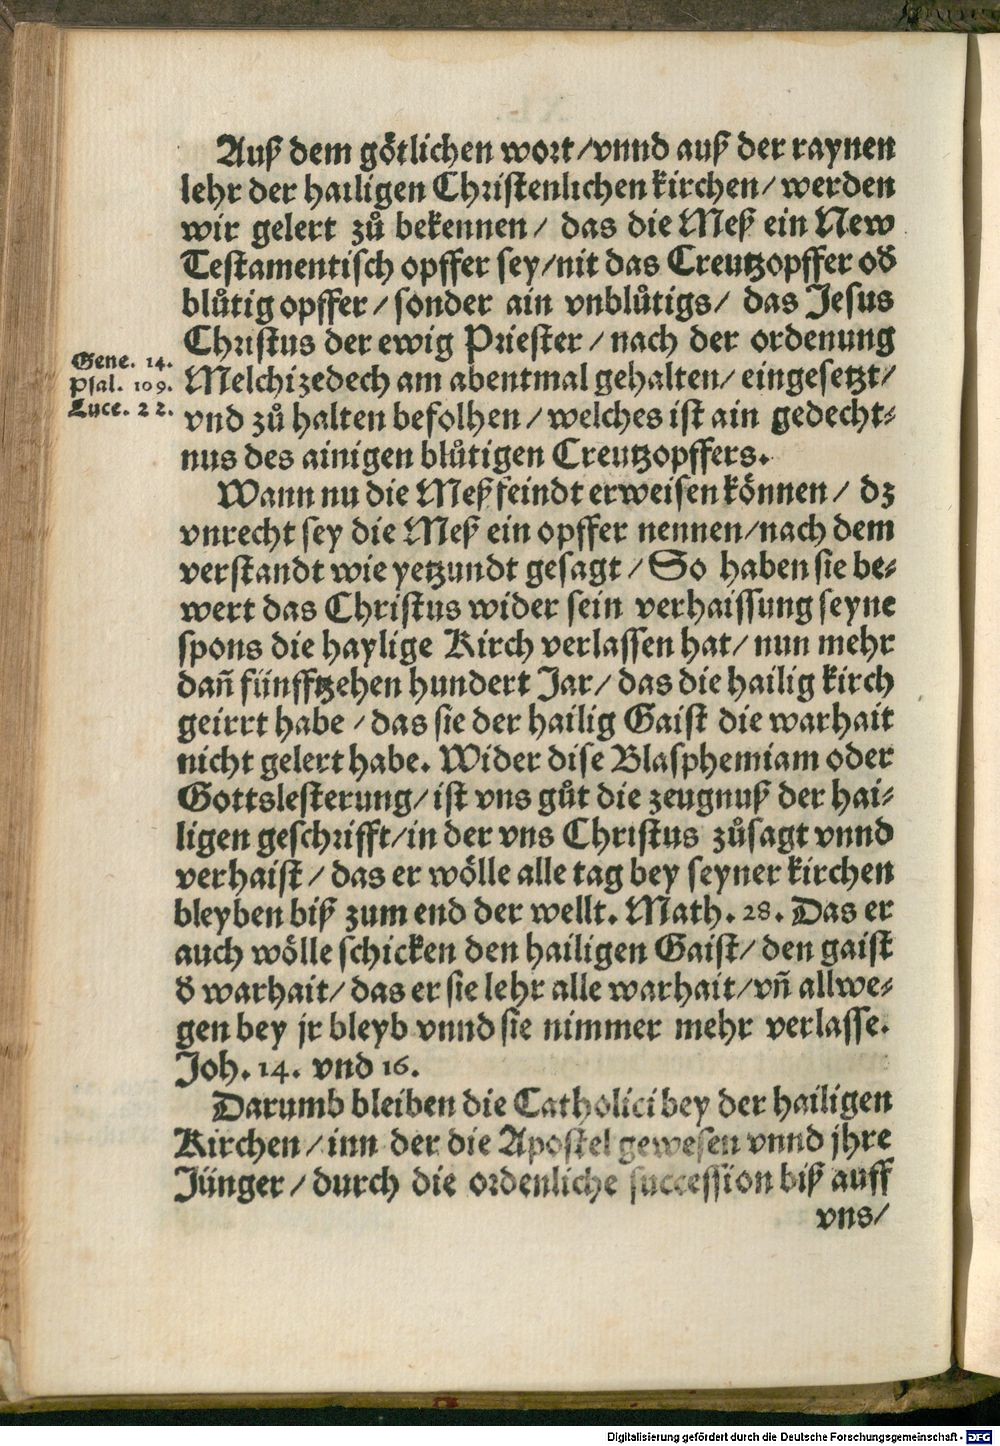 Auß dem götlichen wort/vnnd auß der raynen
lehr der hailigen Christenlichen kirchen/ werden
wir gelert zů bekennen/ das die Meß ein New
Testamentisch opffer sey/nit das Creutzopffer oď
blůtig opffer/ sonder ain vnblůtigs/ das Jesus
Christus der ewig Priester/ nach der ordenung
Gene. 14.
Psal. 109.
Luce. 22.
Melchizedech am abentmal gehalten/ eingesetzt/
vnd zů halten befolhen/ welches ist ain gedecht⸗
nus des ainigen blůtigen Creutzopffers.
Wann nu die Meß feindt erweisen können/ dz
vnrecht sey die Meß ein opffer nennen/nach dem
verstandt wie yetzundt gesagt/ So haben sie be⸗
wert das Christus wider sein verhaissung seyne
spons die haylige Kirch verlassen hat/ nun mehr
dañ fünfftzehen hundert Jar/ das die hailig kirch
geirrt habe/ das sie der hailig Gaist die warhait
nicht gelert habe. Wider dise Blasphemiam oder
Gottslesterung/ ist vns gůt die zeugnuß der hai⸗
ligen geschrifft/in der vns Christus zůsagt vnnd
verhaist/ das er wölle alle tag bey seyner kirchen
bleyben biß zum end der wellt. Math. 28. Das er
auch wölle schicken den hailigen Gaist/ den gaist
ď warhait/ das er sie lehr alle warhait/vñ allwe⸗
gen bey jr bleyb vnnd sie nimmer mehr verlasse.
Joh. 14. vnd 16.
Darumb bleiben die Catholici bey der hailigen
Kirchen/ inn der die Apostel gewesen vnnd jhre
Jünger/ durch die ordenliche succession biß auff
vns/
Digitalisierung gefördert durch die Deutsche Forschungsgemeinschaft - DFG